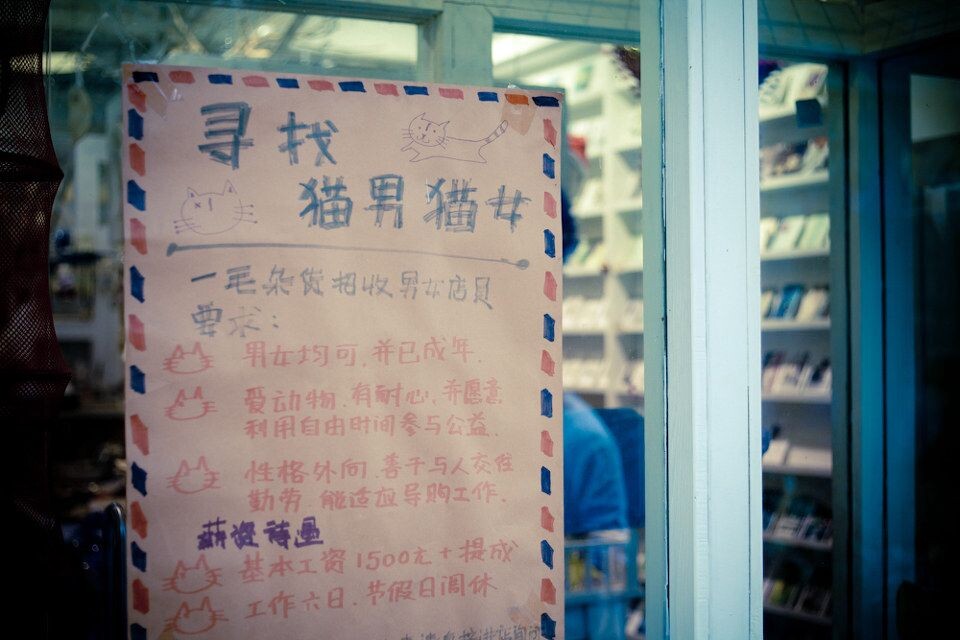 寻找
猫男猫女
一毛杂货招收男女店员
要求：
男女均可.并已成年.
爱动物.有耐心.并愿意
利用自由时间参与公益.
性格外向.善于与人交往
勤劳.能适应导购工作.
薪资待遇
基本工资1500元+提成
工作六日.节假日调休